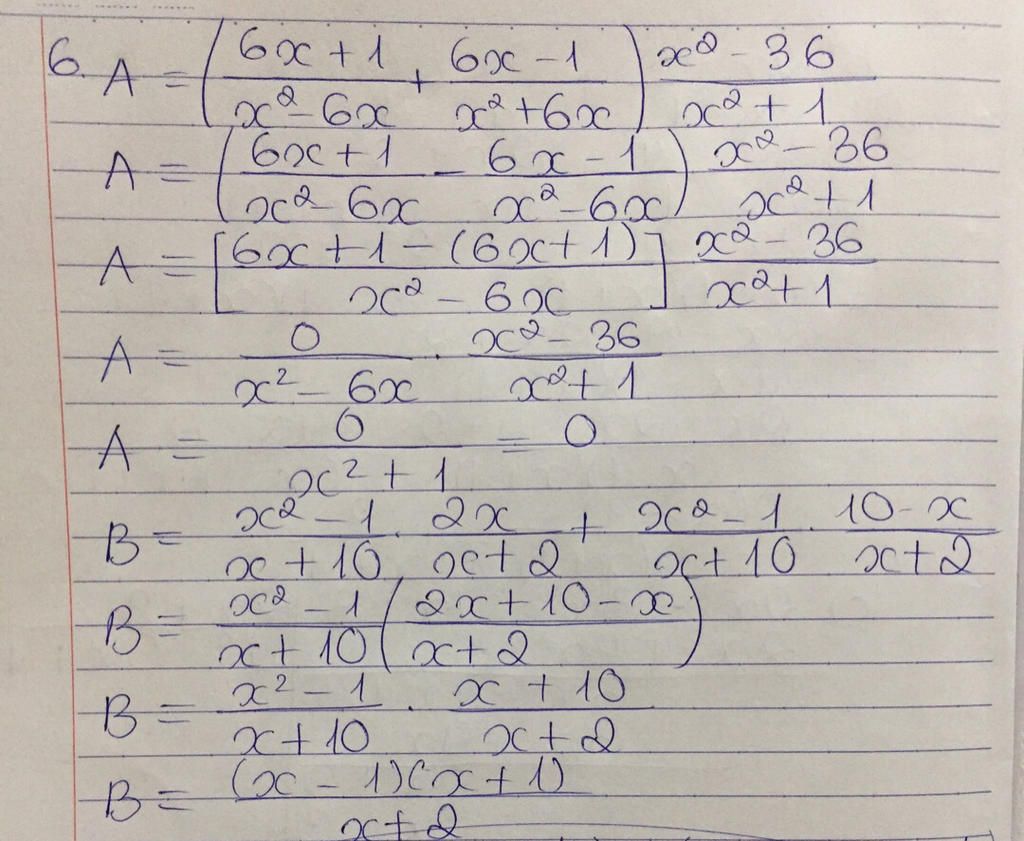 6. A = ( (6x + 1)/(x² - 6x) + (6x - 1)/(x² + 6x) ) (x² - 36)/(x² + 1)
A = ( (6x + 1)/(x² - 6x) - (6x - 1)/(x² - 6x) ) (x² - 36)/(x² + 1)
A = [ (6x + 1 - (6x + 1))/(x² - 6x) ] (x² - 36)/(x² + 1)
A = 0/(x² - 6x) . (x² - 36)/(x² + 1)
A = 0/(x² + 1) = 0
B = (x² - 1)/(x + 10) . 2x/(x + 2) + (x² - 1)/(x + 10) . (10 - x)/(x + 2)
B = (x² - 1)/(x + 10) ( (2x + 10 - x)/(x + 2) )
B = (x² - 1)/(x + 10) . (x + 10)/(x + 2)
B = (x - 1)(x + 1)/(x + 2)